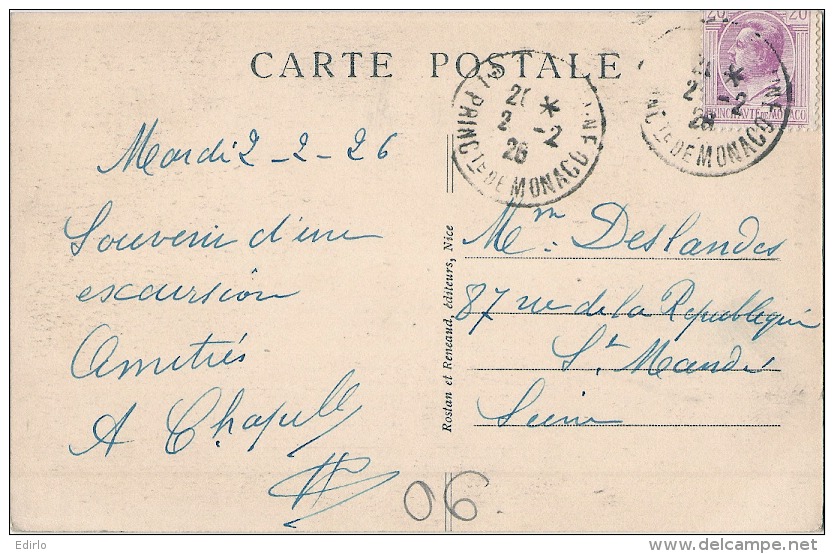 20 20
PRINCIPAUTÉ DE MONACO
CARTE POSTALE
PRINC.TE DE MONACO
2 -2
26
PRINC.TE DE MONACO
2 -2
26
Mardi 2-2-26
Souvenir d'une
excursion
Amitiés
A Chapelle
Rostan et Reneaud, éditeurs, Nice
Mm: Deslandes
87 rue de la Republique
St Mandé
Seine
06
Edirlo
www.delcampe.net